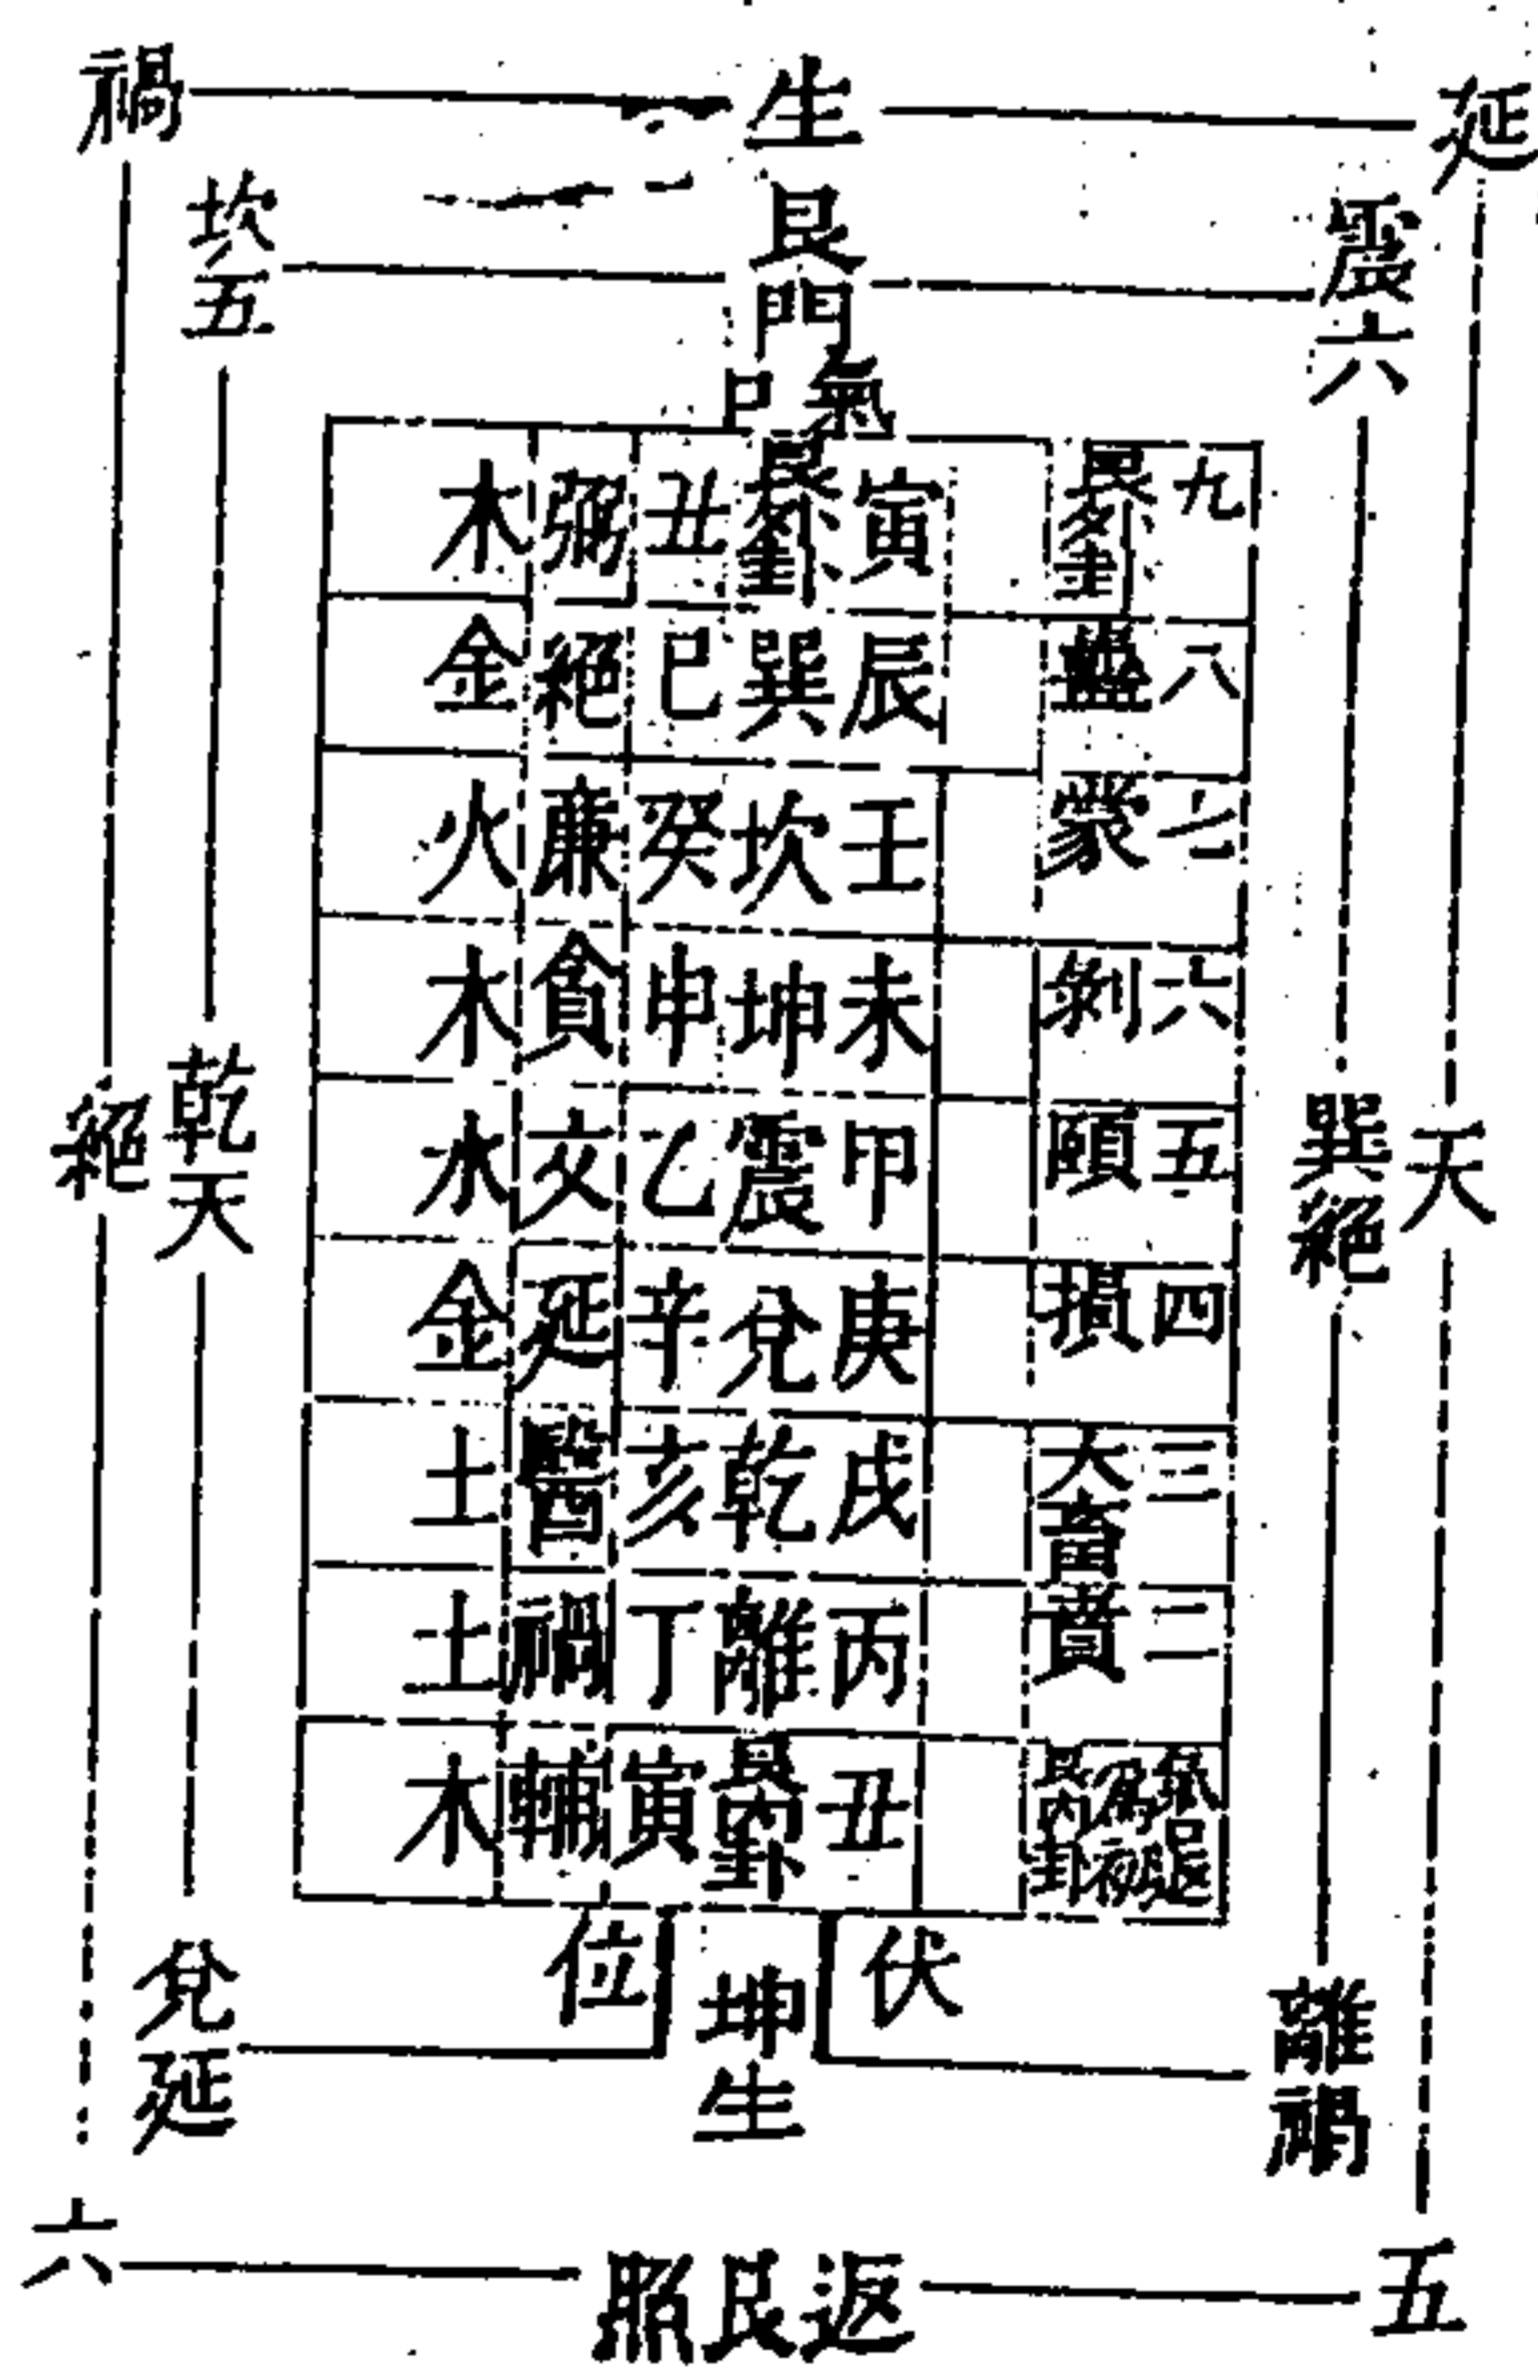 禍 生 延
坎五 艮門 震六
口氣
木 弼 丑 艮外卦 寅 艮外卦 九
金 絕 巳 巽 辰 蠱 八
火 廉 癸 坎 壬 蒙 七
木 貪 申 坤 未 剝 六
水 文 乙 震 甲 頤 五
金 延 辛 兌 庚 損 四
土 醫 亥 乾 戌 大畜 三
土 禍 丁 離 丙 賁 二
木 輔 寅 艮內卦 丑 艮內卦
絕 乾天 巽絕 天
位 伏
兌延 坤生 離禍
六 照艮返 五